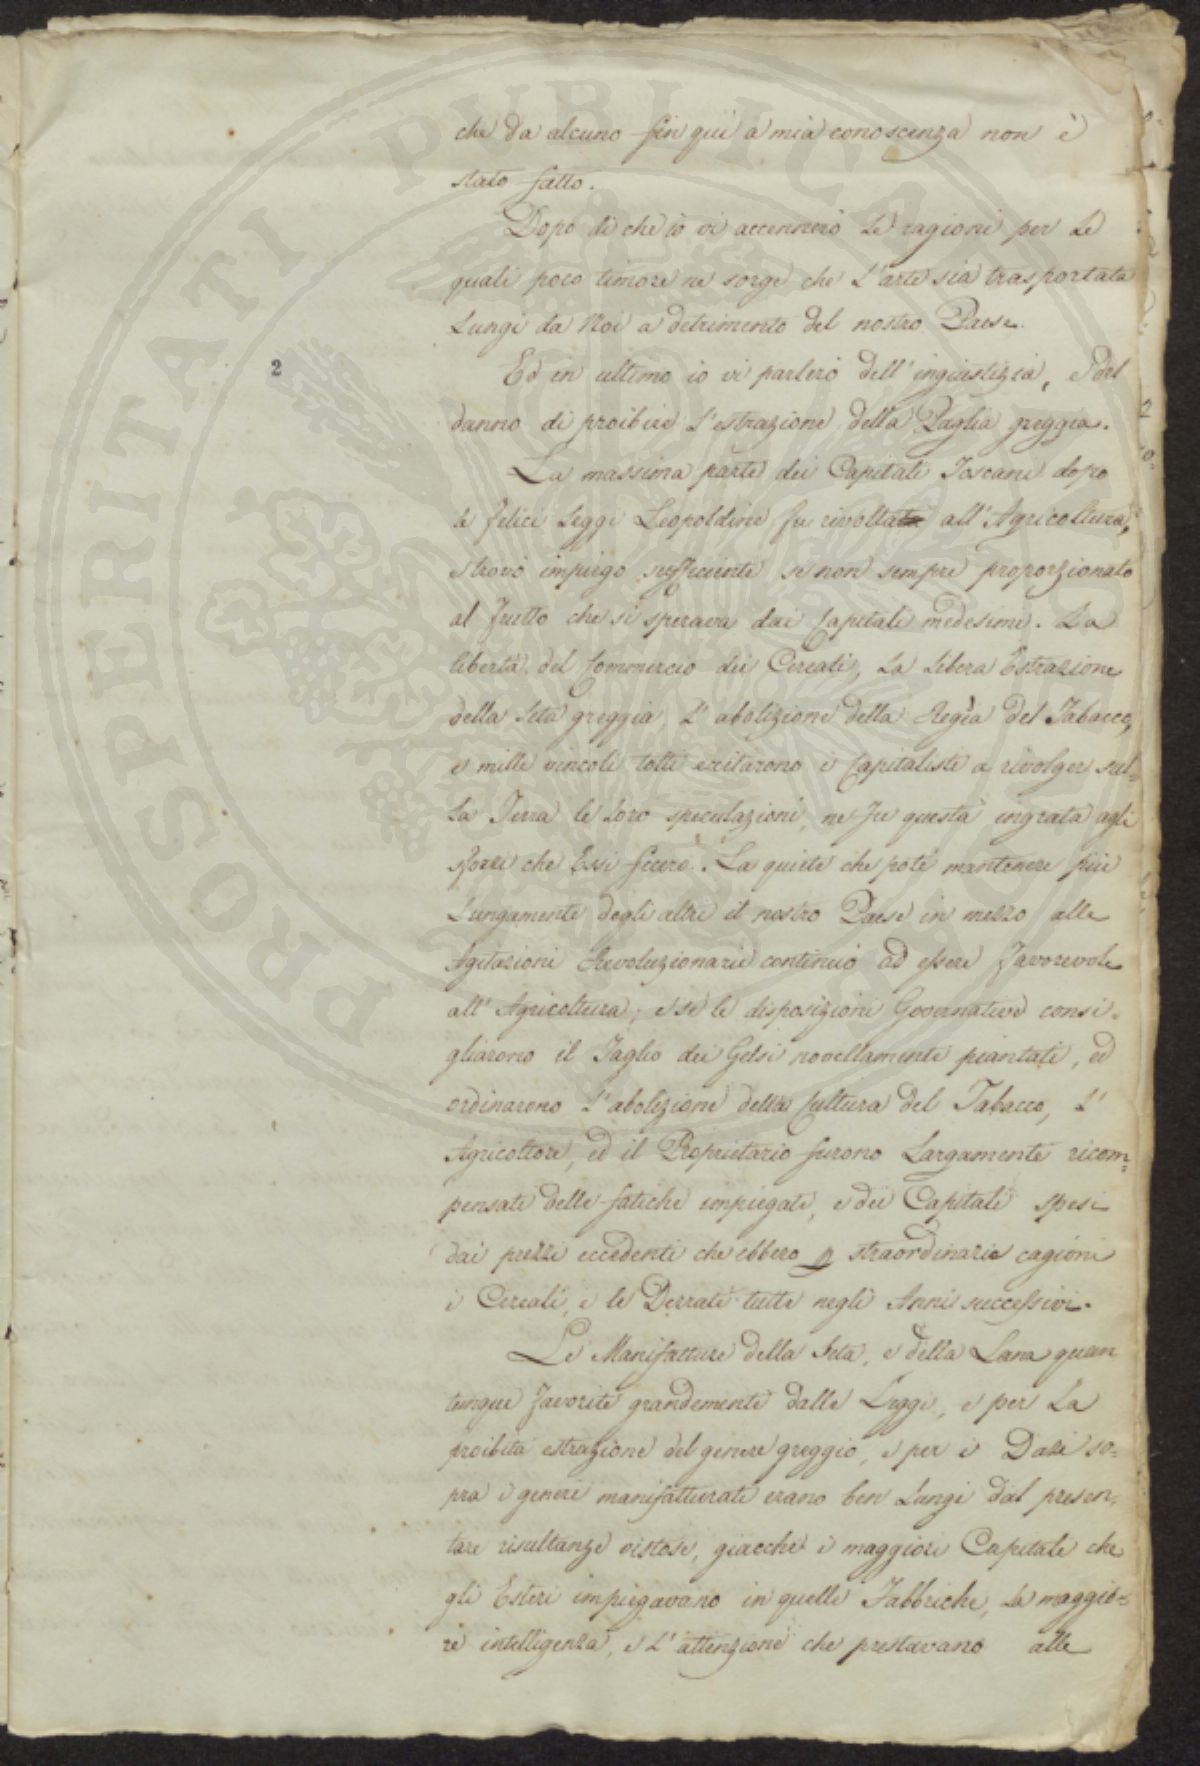 PROSPERITATI PUBLICAE
che da alcuno fin qui a mia conoscenza non è
stato fatto.
Dopo di che io vi accennerò le ragioni per le
quali poco timore ne sorge che l'arte sia trasportata
lungi da Noi a detrimento del nostro Paese.
2
Ed in ultimo io vi parlerò dell'ingiustizia, e del
danno di proibire l'estrazione della Paglia greggia.
La massima parte dei Capitali Toscani dopo
le felici Leggi Leopoldine fu rivolta all'Agricoltura,
e trovò impiego sufficiente se non sempre proporzionato
al frutto che si sperava dai Capitali medesimi. La
libertà del Commercio dei Cereali, la libera Estrazione
della Seta greggia, l'abolizione della Regìa del Tabacco,
e mille vincoli tolti eccitarono i Capitalisti a rivolger sul=
la Terra le loro speculazioni, ne fu questa ingrata agli
sforzi che Essi fecero. La quiete che potè mantenere più
lungamente degli altri il nostro Paese in mezzo alle
Agitazioni Rivoluzionarie continuò ad essere favorevole
all'Agricoltura; e se le disposizioni Governative consi=
gliarono il Taglio dei Gelsi novellamente piantati, ed
ordinarono l'abolizione della Cultura del Tabacco, l'
Agricoltore, ed il Proprietario furono largamente ricom=
pensati delle fatiche impiegate, e dei Capitali spesi
dai prezzi eccedenti che ebbero p straordinarie cagioni
i Cereali, e le Derrate tutte negli Anni successivi.
Le Manifatture della Seta, e della Lana quan
tunque favorite grandemente dalle Leggi, e per la
proibita estrazione del genere greggio, e per i Dazi so=
pra i generi manifatturati erano ben lungi dal presen=
tare risultanze vistose, giacchè i maggiori Capitali che
gli Esteri impiegavano in quelle Fabbriche, la maggio=
re intelligenza, e l'attenzione che prestavano alle